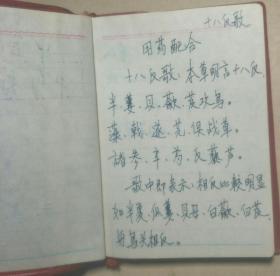 十八反歌
因药配合
十八反歌,本草明言十八反
半蒌贝蔹芨攻乌。
藻、戟、遂、芫俱战草。
诸参、辛、芍、反藜芦。
歌中即表示,相反比较明显
如半夏、瓜蒌、贝母、白蔹、白芨,
与乌头相反。